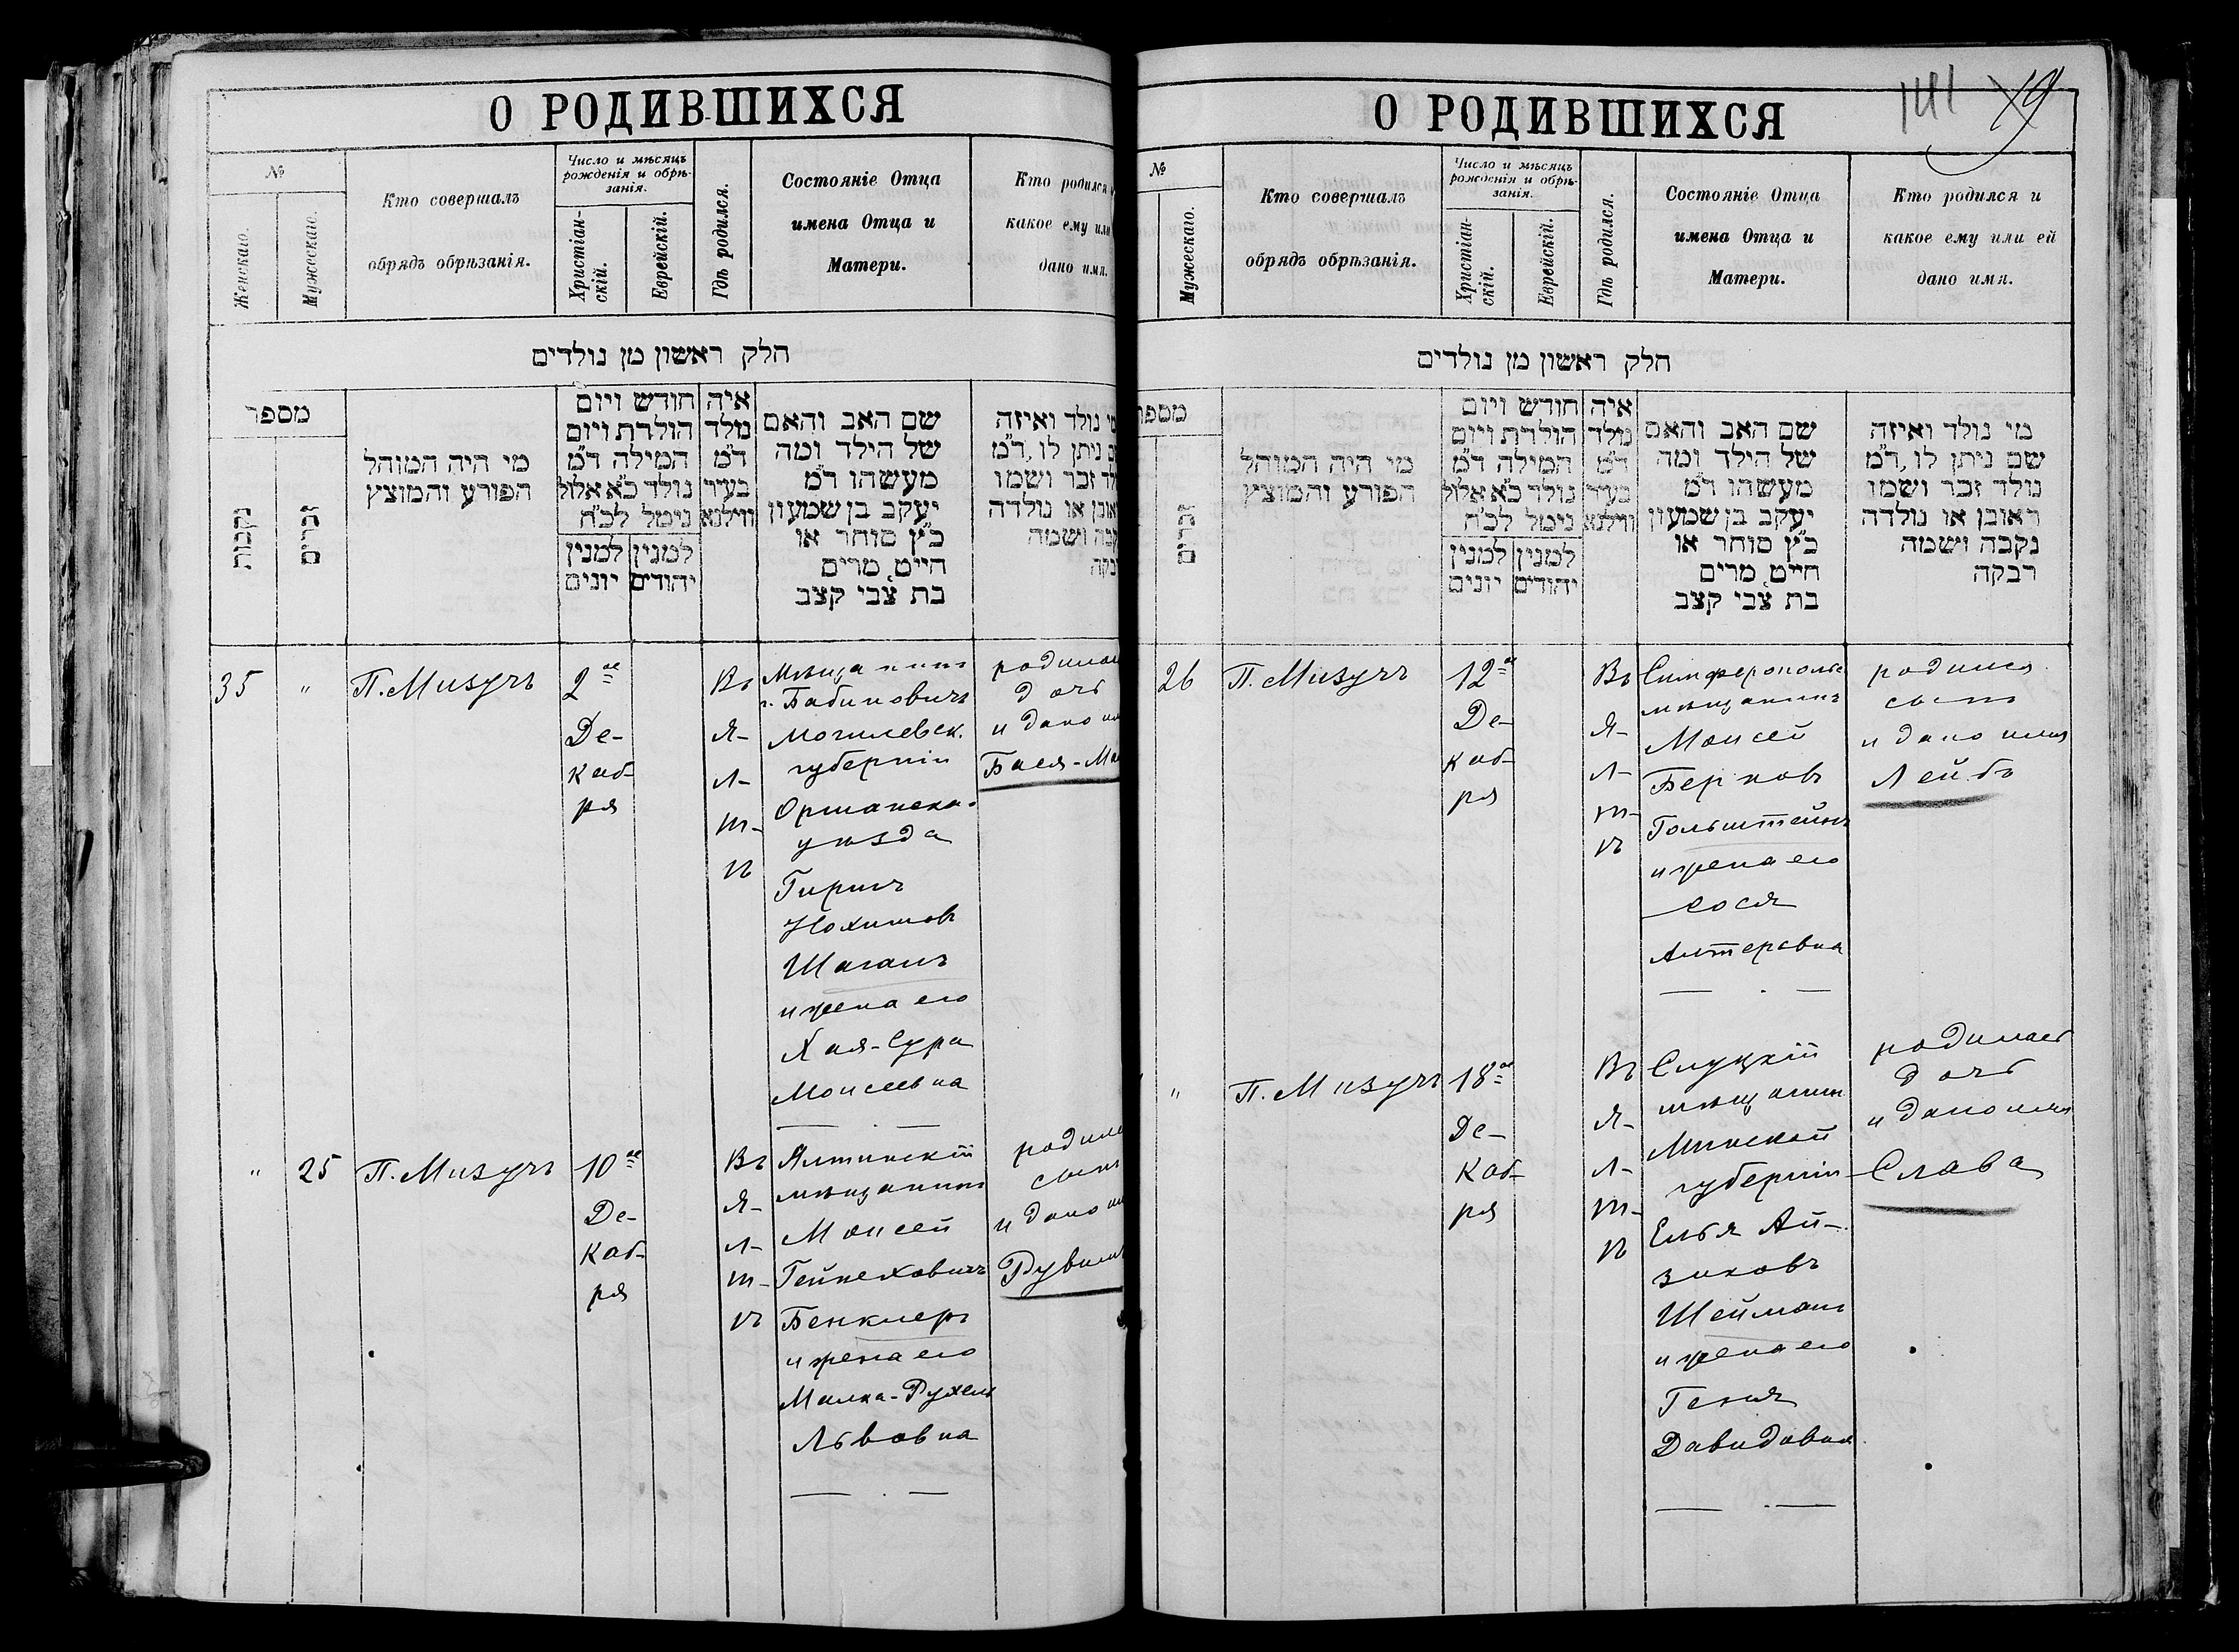 О РОДИВШИХСЯ
№
Женскаго.
Мужескаго.
Кто совершалъ
обрядъ обрѣзанія.
Число и мѣсяцъ
рожденія и обрѣ-
занія.
Христіан-
скій.
Еврейскій.
Гдѣ родился.
Состояніе Отца
имена Отца и
Матери.
Кто родился
какое ему или
дано имя.
חלק ראשון מן נולדים
מספר
נקבות
זכרים
מי היה המוהל
הפורע והמוצץ
חודש ויום
הולדת ויום
המילה ד״מ
נולד כ״א אלול
נימל לכ״ח
למנין
יונים
למנין
יהודים
איה
נולד
ד״מ
בעיר
ווילנא
שם האב והאם
של הילד ומה
מעשהו ד״מ
יעקב בן שמעון
כ״ץ סוחר או
חייט, מרים
בת צבי קצב
נולד ואיזה
ניתן לו, ד״מ
זכר ושמו
או נולדה
ושמה
35
"
П. Мизучъ
2ое
Де-
каб-
ря
Въ
Я-
л-
т-
ѣ
Мѣщанинъ
г. Бабиновичъ
Могилевск.
губерніи
Оршанска.
уѣзда
Гиршъ
Нохимовъ
Шаганъ
и жена его
Хая-Сура
Моисеевна
дочь
и дано
Бася-
"
25
П. Мизучъ
10ое
Де-
каб-
ря
Въ
Я-
л-
т-
ѣ
Ялтинскій
мѣщанинъ
Моисей
Гейнеховичъ
Бенклеръ
и жена его
Малка-Рухель
Львовна
сынъ
и дано
О РОДИВШИХСЯ
141
79
№
Мужескаго.
Кто совершалъ
обрядъ обрѣзанія.
Число и мѣсяцъ
рожденія и обрѣ-
занія.
Христіан-
скій.
Еврейскій.
Гдѣ родился.
Состояніе Отца
имена Отца и
Матери.
Кто родился и
какое ему или ей
дано имя.
חלק ראשון מן נולדים
זכרים
מי היה המוהל
הפורע והמוצץ
חודש ויום
הולדת ויום
המילה ד״מ
נולד כ״א אלול
נימל לכ״ח
למנין
יונים
למנין
יהודים
איה
נולד
ד״מ
בעיר
ווילנא
שם האב והאם
של הילד ומה
מעשהו ד״מ
יעקב בן שמעון
כ״ץ סוחר או
חייט, מרים
בת צבי קצב
מי נולד ואיזה
שם ניתן לו, ד״מ
נולד זכר ושמו
ראובן או נולדה
נקבה ושמה
רבקה
26
П. Мизучъ
12ое
Де-
каб-
ря
Въ
Я-
л-
т-
ѣ
Симферопольс
мѣщанинъ
Моисей
Берковъ
Гольштейнъ
и жена его
Сося
Алтеровна
родился
сынъ
и дано имя
Лейбъ
"
П. Мизучъ
18ое
Де-
каб-
ря
Въ
Я-
л-
т-
ѣ
Слуцкій
мѣщанинъ
Минской
губерніи
Елья Ай-
зиковъ
Шейманъ
и жена его
Геня
Давидовна
родилась
дочь
и дано имя
Слава